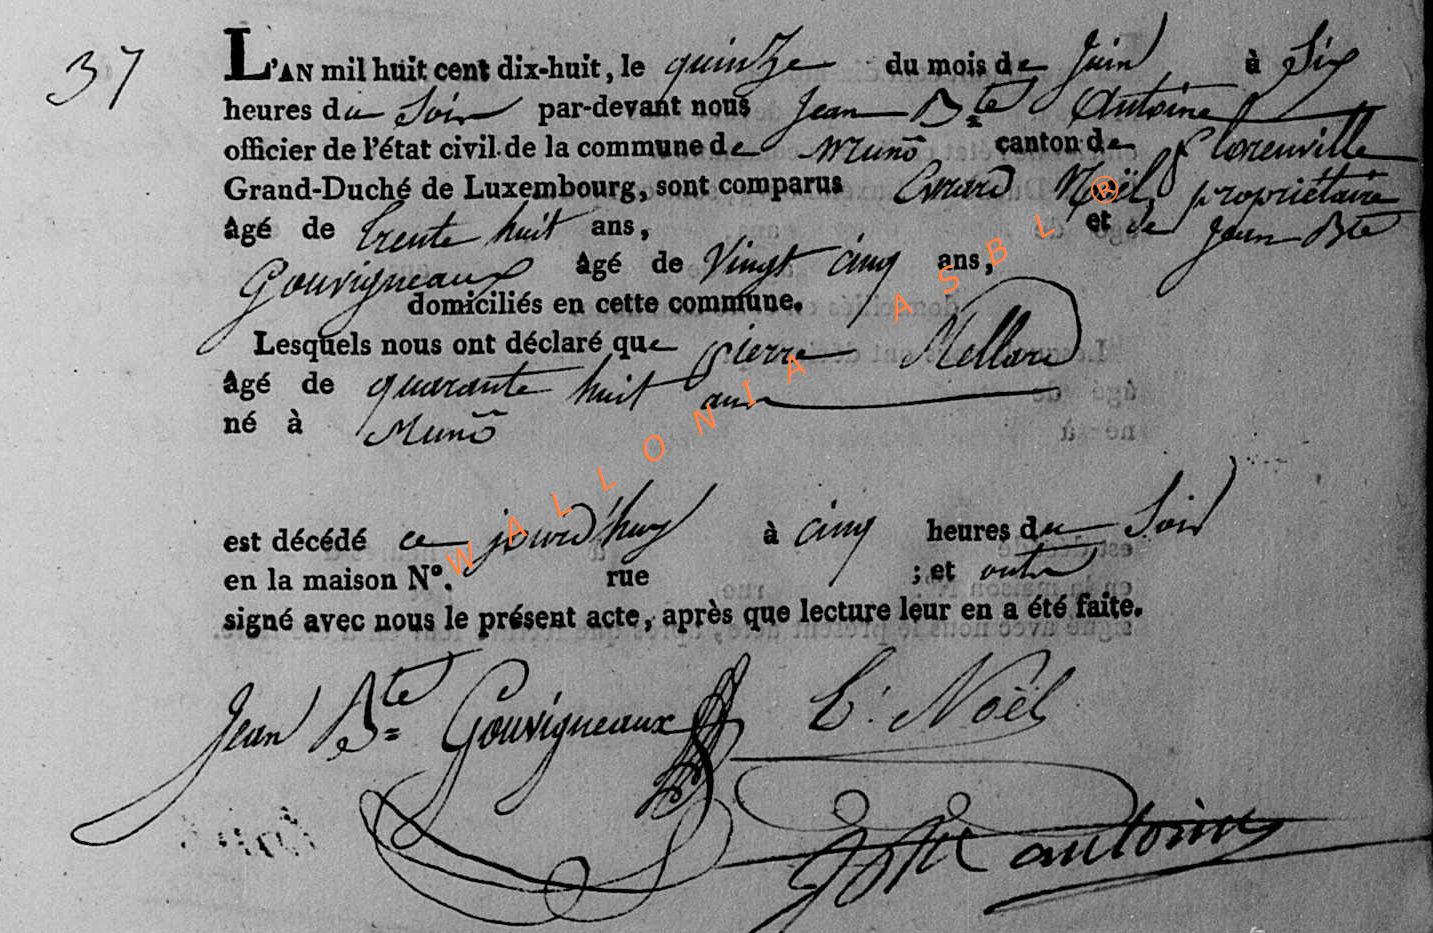 37
L'AN mil huit cent dix-huit, le quinze du mois de Juin à Six
heures du Soir par-devant nous Jean Bte Antoine
officier de l'état civil de la commune de Muno canton de Florenville
Grand-Duché de Luxembourg, sont comparus Evrard Noël, propriétaire
âgé de trente huit ans, et de Jean Bte
Gouvigneaux âgé de Vingt cinq ans,
domiciliés en cette commune.
Lesquels nous ont déclaré que pierre Mellard
âgé de quarante huit ans
né à Muno
est décédé ce jourd'huy à cinq heures du Soir
en la maison N°. rue ; et ont
signé avec nous le présent acte, après que lecture leur en a été faite.
Jean Bte Gouvigneaux E. Noël
JBte antoine
WALLONIA ASBL ®